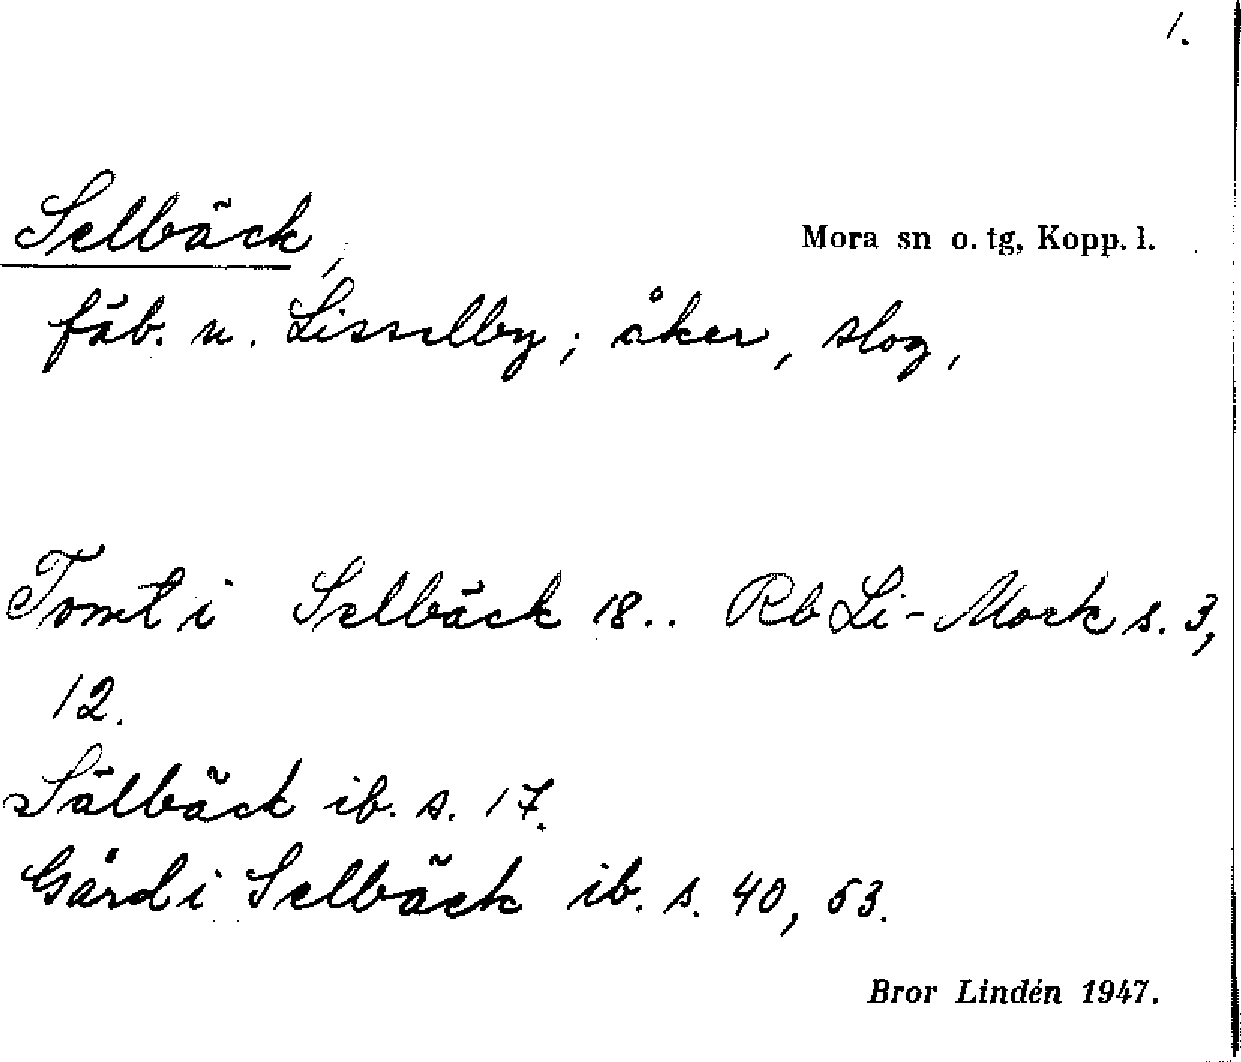 1.
Selbäck,
Mora sn o. tg, Kopp. l.
fäb. u. Lisselby; åker, slog,
Tomt i Selbäck 18.. Rb Li-Mock s. 3,
12.
Sälbäck ib. s. 17.
Gård i Selbäck ib. s. 40, 53.
Bror Lindén 1947.